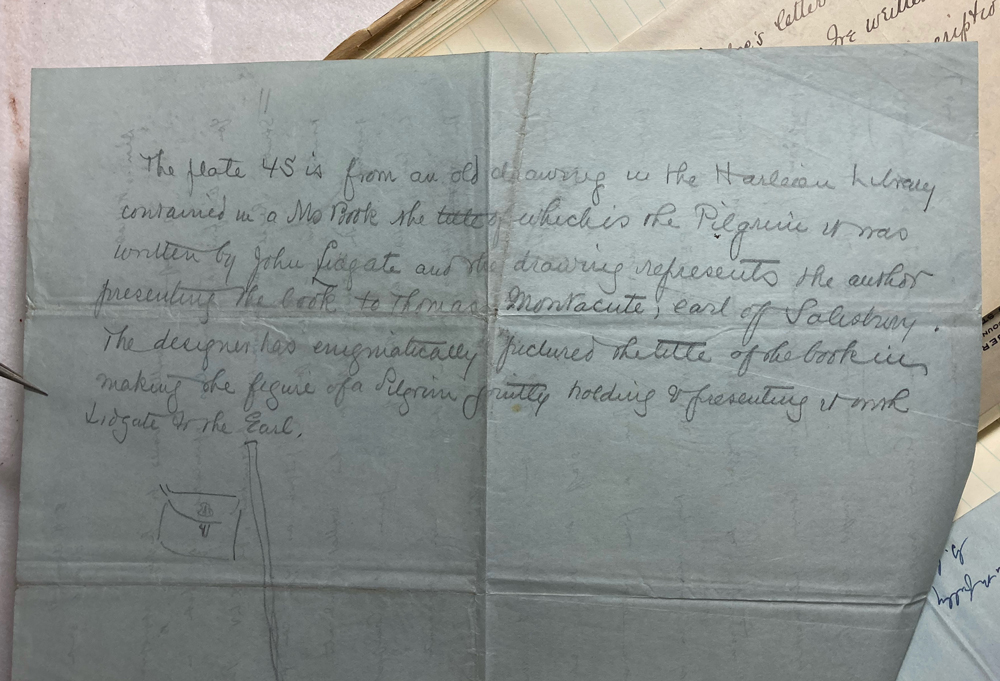 The plate 45 is from an old drawing in the Harleian Library
contained in a Ms Book the title of which is the Pilgrim it was
written by John Lidgate and the drawing represents the author
presenting the book to Thomas Montacute, earl of Salisbury.
The designer has enigmatically pictured the title of the book in
making the figure of a Pilgrim jointly holding & presenting it with
Lidgate to the Earl.
letter
written